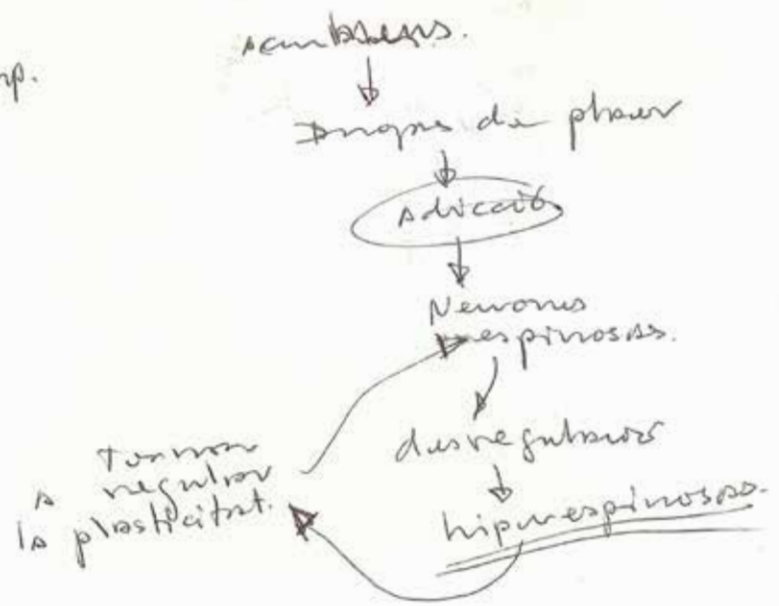 np.
Drogues de plaer
Adicció
Neurones
espinoses.
desregulació
hiperespinoses.
Tornar
a regular
la plasticitat.